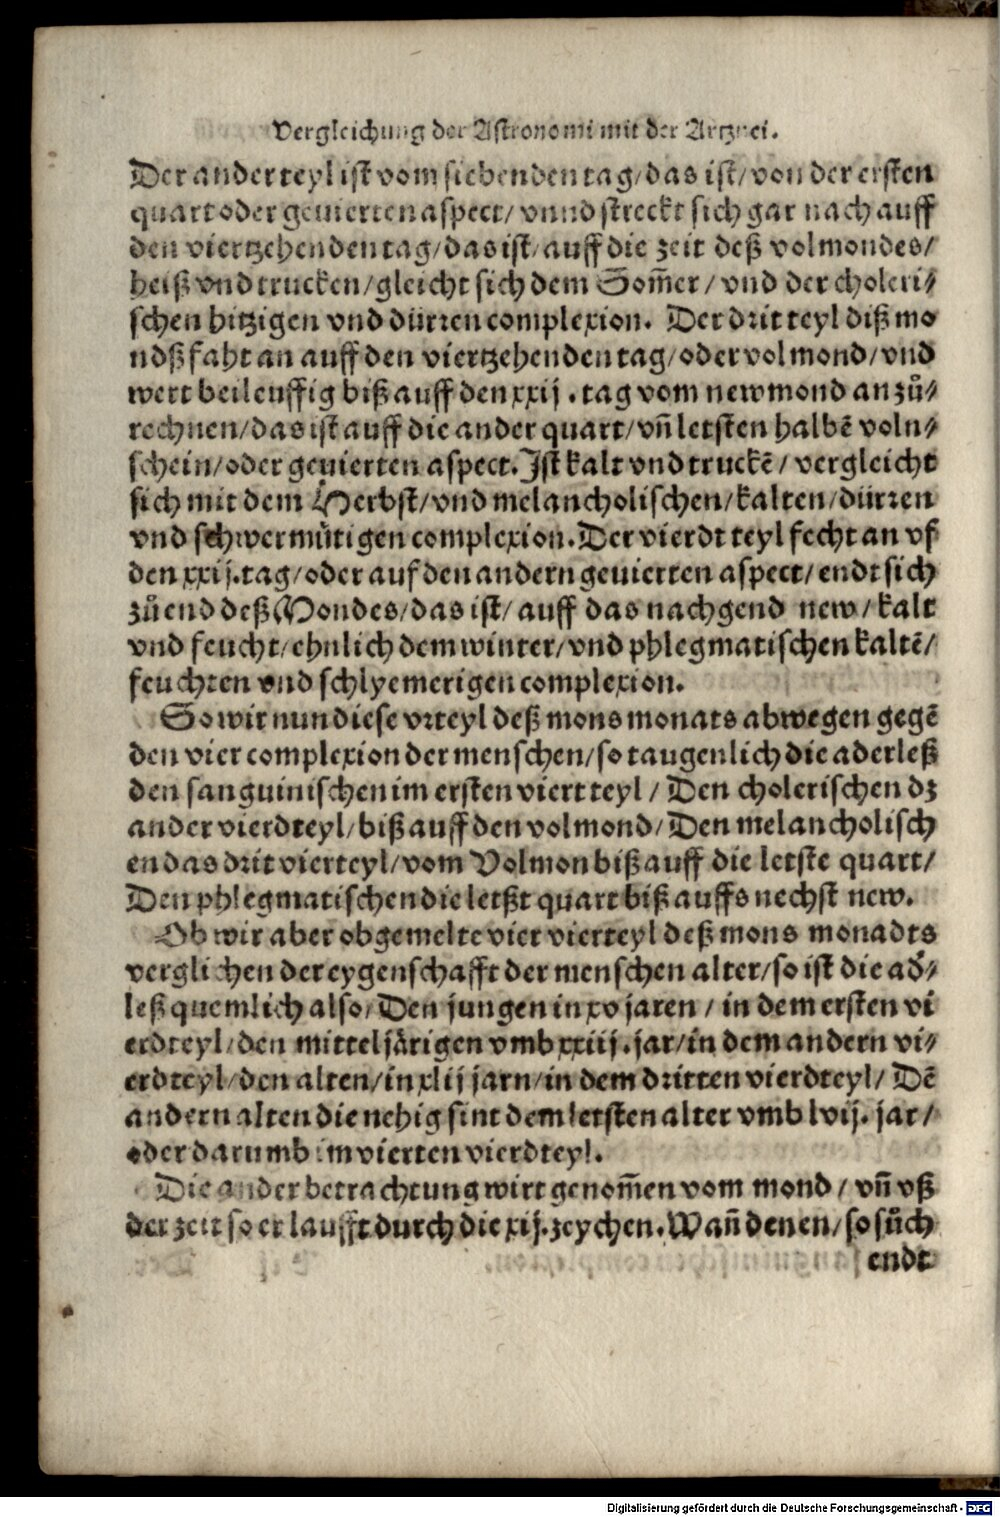 Vergleichung der Astronomi mit der Artznei.
Der ander teyl ist vom siebenden tag/das ist/von der ersten
quart oder geuierten aspect/ vnnd streckt sich gar nach auff
den viertzehenden tag/das ist/auff die zeit deß volmondes/
heiß vnd trucken/gleicht sich dem Som̃er/ vnd der choleri⸗
schen hitzigen vnd dürren complexion. Der drit teyl diß mo
ndß faht an auff den viertzehenden tag/oder volmond/vnd
wert beileuffig biß auff den xxij. tag vom newmond an zů⸗
rechnen/das ist auff die ander quart/vñ letsten halbẽ voln⸗
schein/oder geuierten aspect. Ist kalt vnd truckẽ/ vergleicht
sich mit dem Herbst/vnd melancholischen/kalten/dürren
vnd schwermütigen complexion. Der vierdt teyl fecht an vf
den xxij. tag/oder auf den andern geuierten aspect/endt sich
zů end deß Mondes/das ist/ auff das nachgend new/ kalt
vnd feucht/ehnlich dem winter/vnd phlegmatischen kaltẽ/
feuchten vnd schlyemerigen complexion.
So wir nun diese vrteyl deß mons monats abwegen gegẽ
den vier complexion der menschen/so taugenlich die aderleß
den sanguinischen im ersten viert teyl/ Den cholerischen dz
ander vierdteyl/biß auff den volmond/Den melancholisch
en das drit vierteyl/vom Volmon biß auff die letste quart/
Den phlegmatischen die letßt quart biß auffs nechst new.
Ob wir aber obgemelte vier vierteyl deß mons monadts
verglichen der eygenschafft der menschen alter/so ist die ad̉⸗
leß quemlich also/Den jungen in xv jaren/ in dem ersten vi
erdteyl/den mitteljärigen vmb xxiij. jar/in dem andern vi⸗
erdteyl/den alten/in xlij jarn/in dem dritten vierdteyl/ Dẽ
andern alten die nehig sint dem letsten alter vmb lvij. jar/
oder darumb im vierten vierdteyl.
Die ander betrachtung wirt genom̃en vom mond/ vñ vß
der zeit so er laufft durch die xij. zeychen. Wañ denen/so sůch
endt
Digitalisierung gefördert durch die Deutsche Forschungsgemeinschaft - DFG